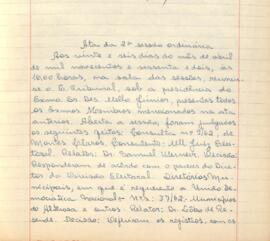 Ata da 2ª sessão ordinária
Aos vinte e seis dias do mês de abril
de mil novecentos e sessenta e dois, às
16,00 horas, na sala das sessões, reuniu-
se o E. Tribunal, sob a presidência do
Exmo. Sr. Des. Mello Júnior, presentes todos
os Exmos. Membros mencionados na ata
anterior. Aberta a sessão, foram julgados
os seguintes feitos: Consulta nº 9/62, de
Montes Claros. Consulente: MM. Juiz Elei-
toral. Relator: Dr. Samuel Werneck. Decisão:
Responderam de acôrdo com o parecer do Dire-
tor da Divisão Eleitoral. Diretórios Mu-
nicipais, em que é requerente a União De-
mocrática Nacional: Nrs. 37/62. Municípios
de e outros. Relator: Dr. Lobão de Re-
sende. Decisão: Deferiram os registros, com as